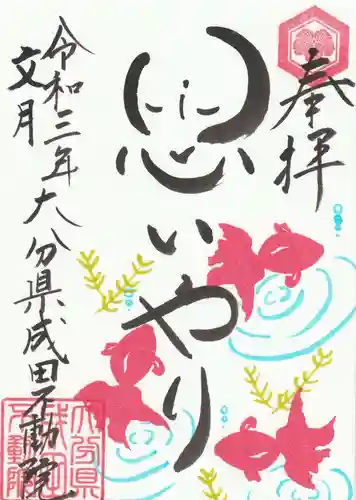 奉拝
思いやり
令和三年大分県成田不動院
文月
大分県
成田
不動院